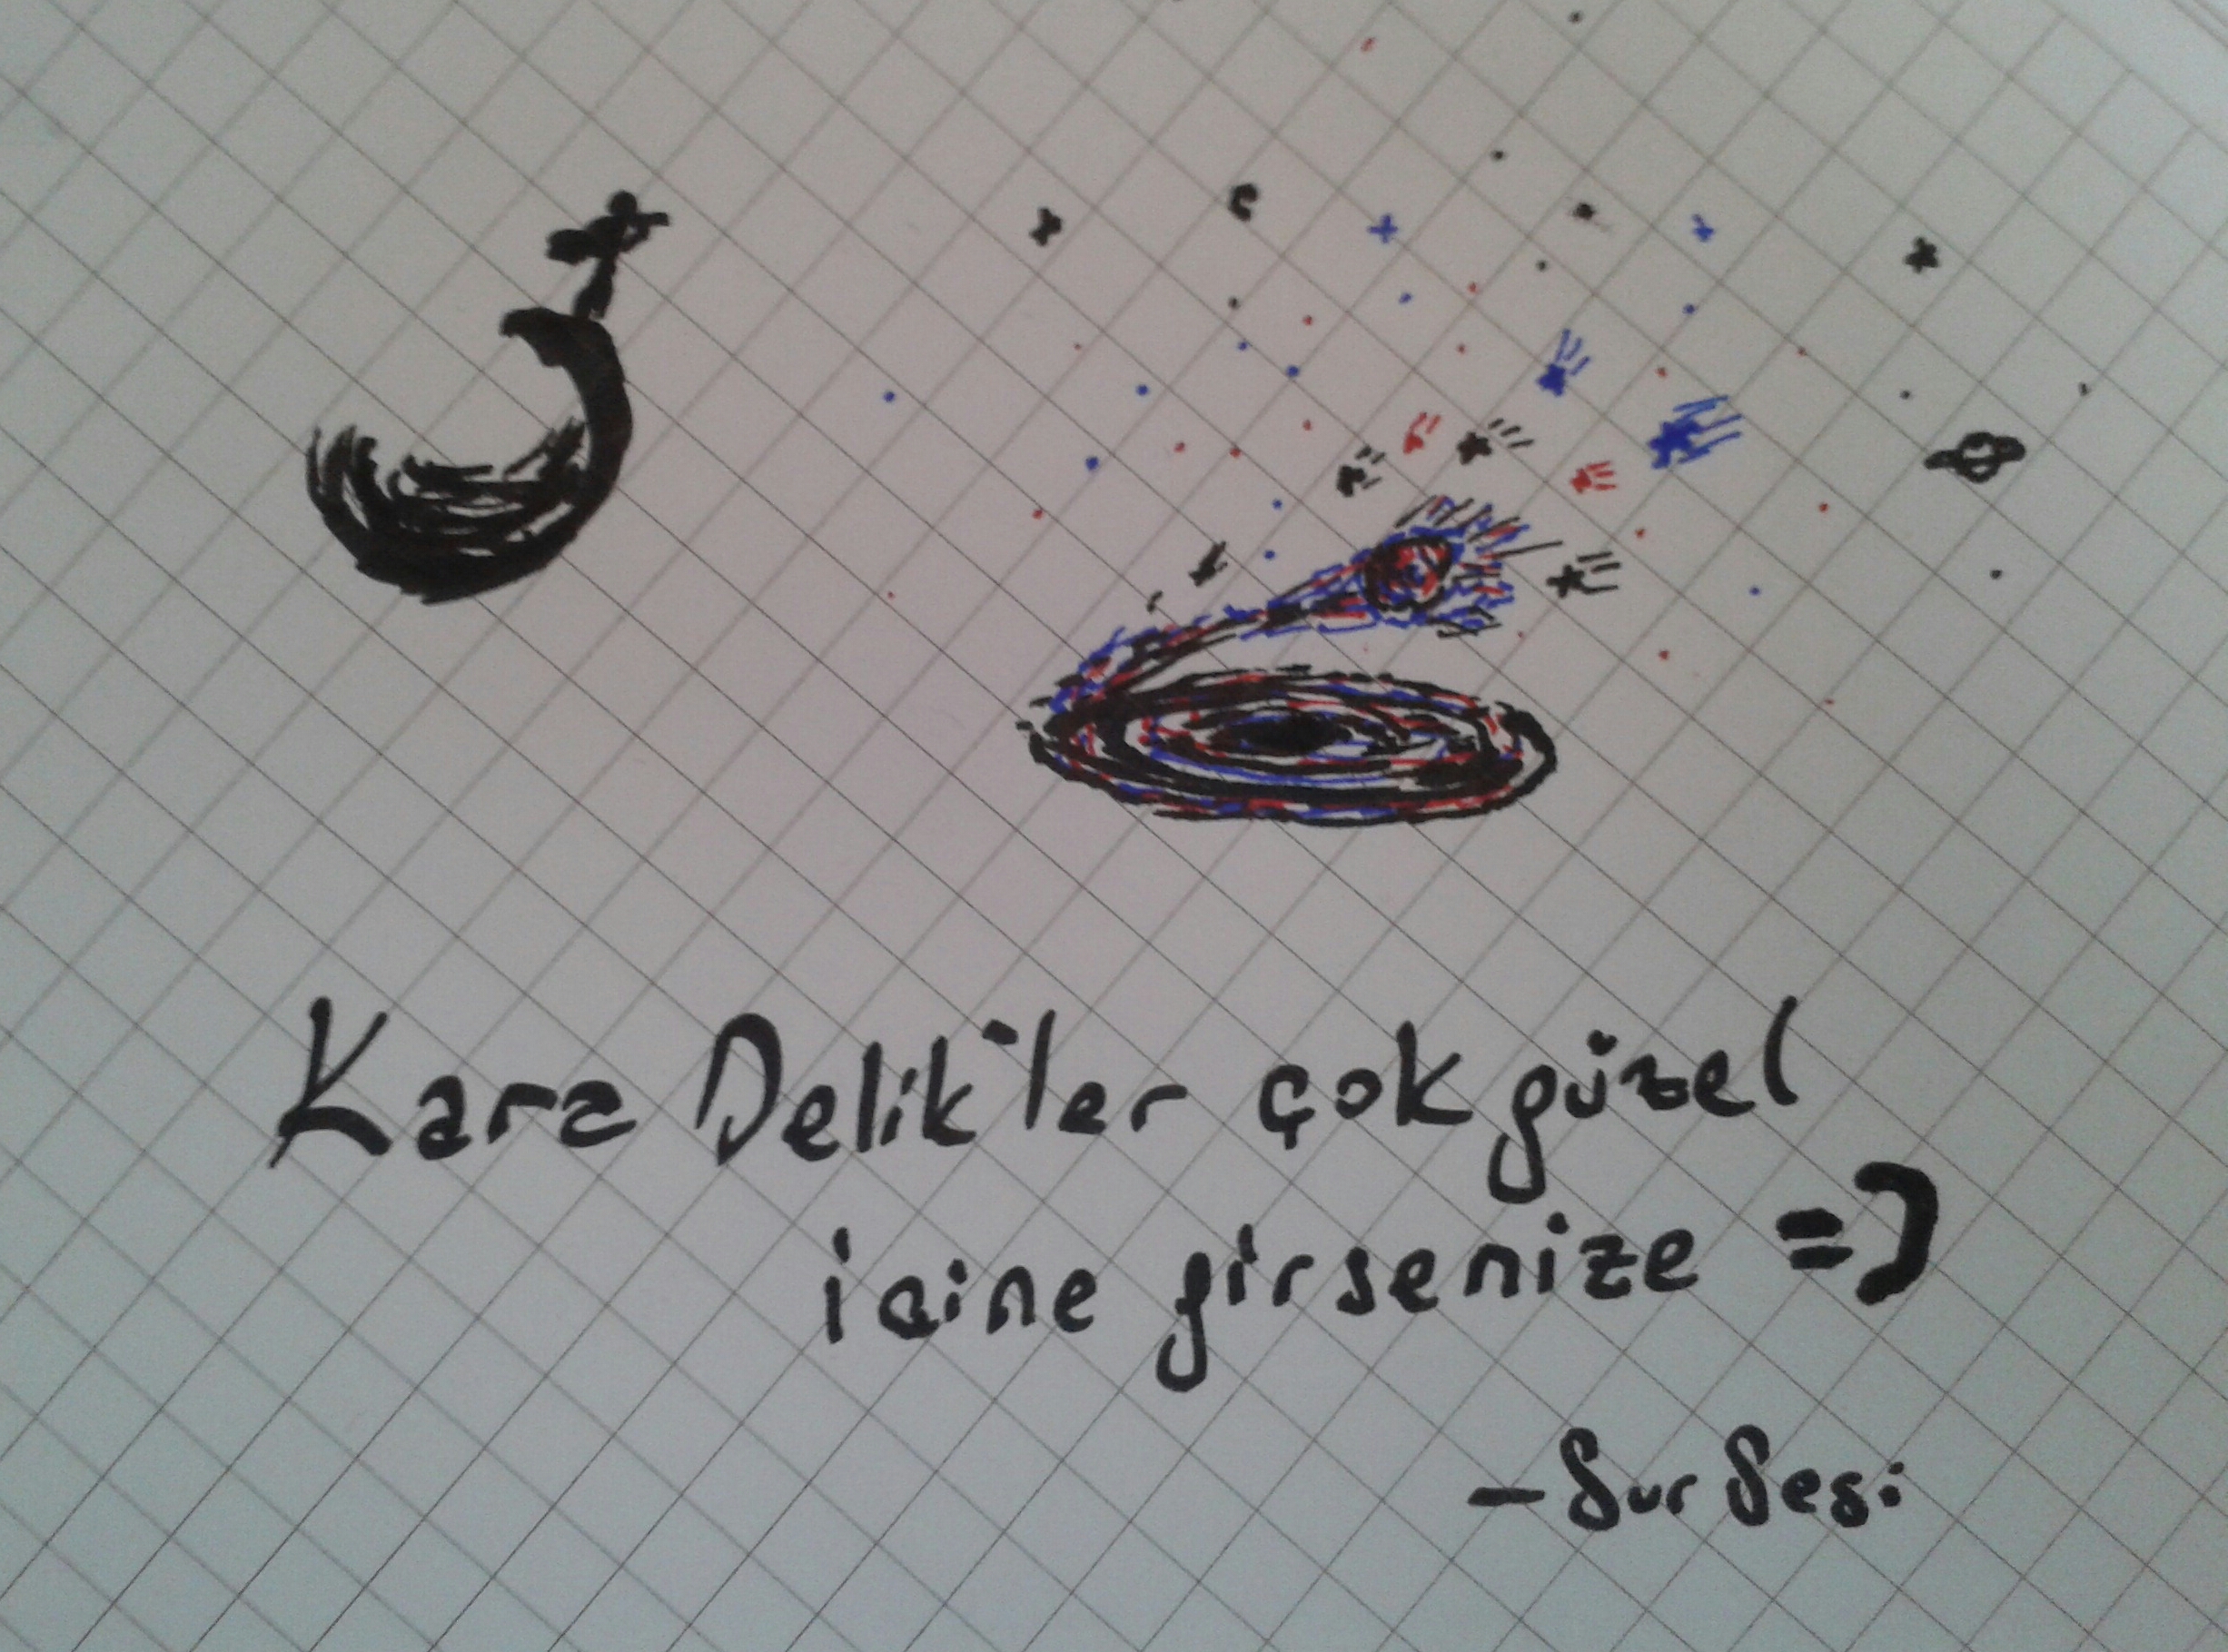 Kara Delik'ler çok güzel
içine girsenize =)
- Sur Sesi